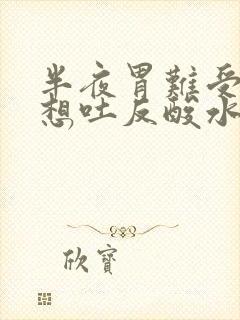 半夜胃難受
想吐反酸水
欣寶